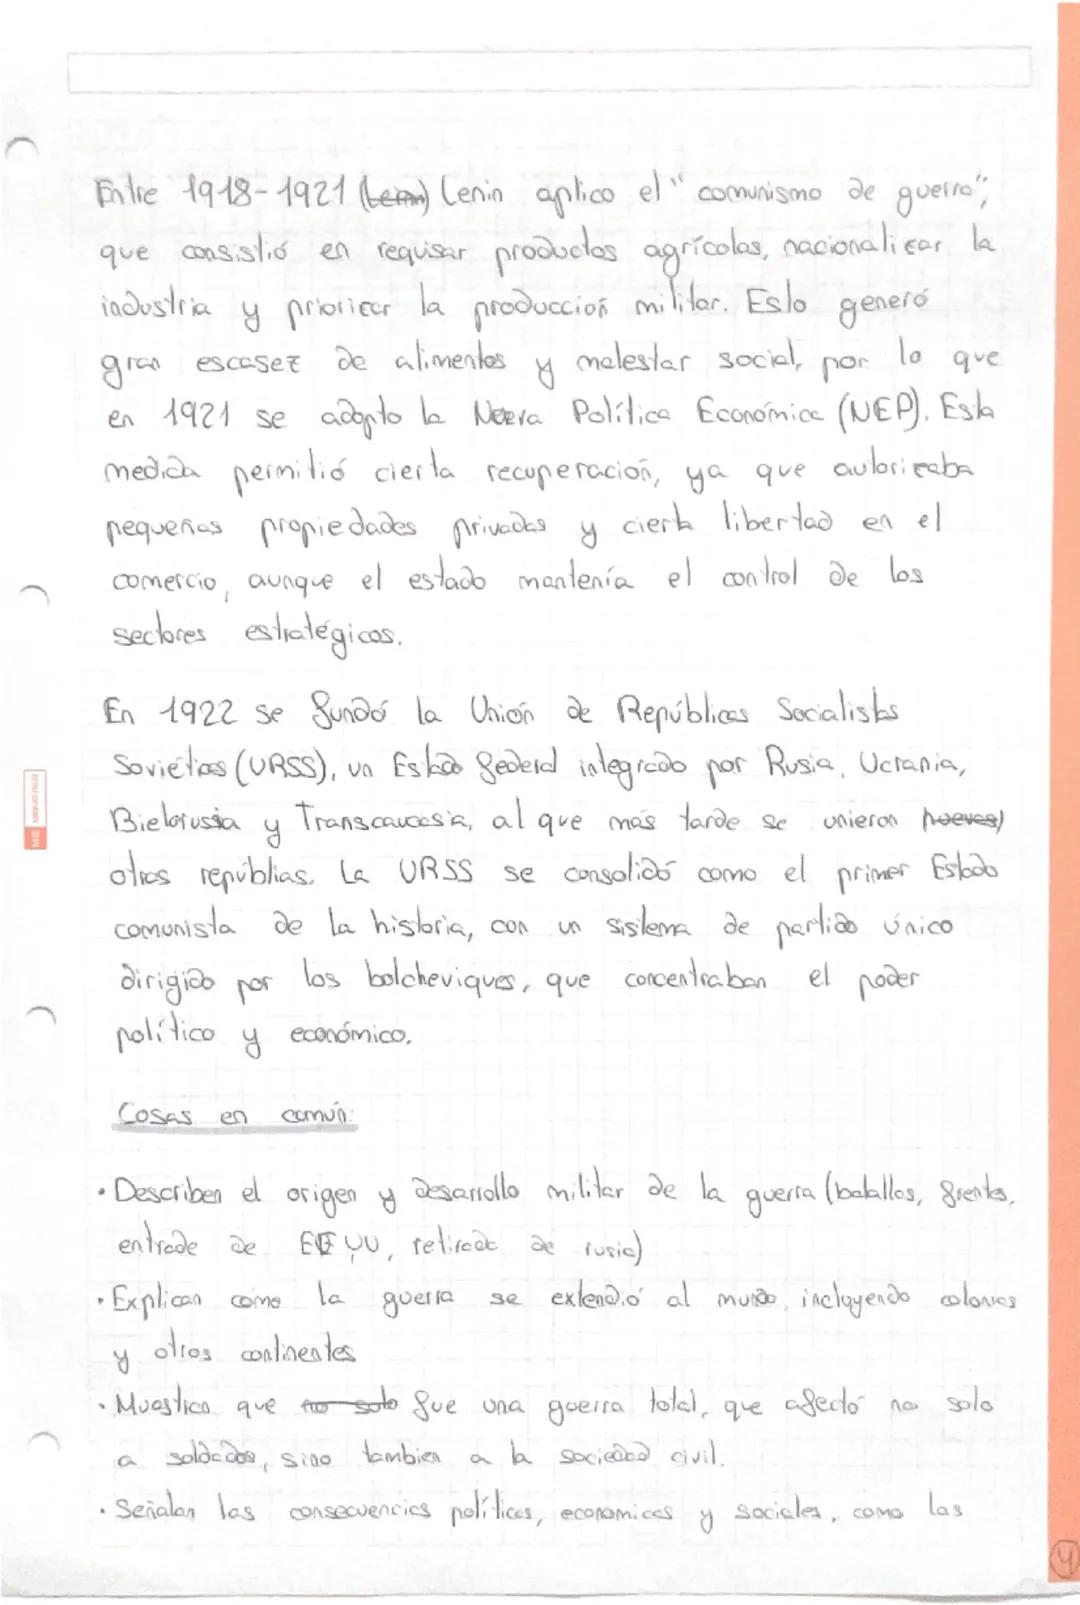 Entre 1918-1921 (Lenin) Lenin aplico el "comunismo de guerra",
que consistió en requisar productos agrícolas, nacionalizar la
industria y priorizar la producción militar. Esto generó
gran escasez de alimentos y malestar social, por lo que
en 1921 se adopto la Nueva Política Económica (NEP). Esta
medida permitió cierta recuperación, ya que autorizaba
pequeñas propiedades privadas y cierta libertad en el
comercio, aunque el estado mantenía el control de los
sectores estratégicos.
En 1922 se fundó la Unión de Repúblicas Socialistas
Soviéticas (URSS), un Estado federal integrado por Rusia, Ucrania,
Bielorussia y Transcaucasia, al que más tarde se unieron nuevas)
otras repúblias. La URSS se consolidó como el primer Estado
comunista de la historia, con un sistema de partido único
dirigido por los bolcheviques, que concentraban el poder
político y económico.
Cosas en común:
• Describen el origen y desarrollo militar de la guerra (batallas, frentes,
entrada de EEUU, retirada de rusia)
• Explican como la guerra se extendió al mundo, incluyendo colonias
y otros continentes
• Muestran que no solo fue una guerra total, que afectó no solo
a soldados, sino tambien a la sociedad civil.
• Señalan las consecuencias políticas, economicas y sociales, como las
4